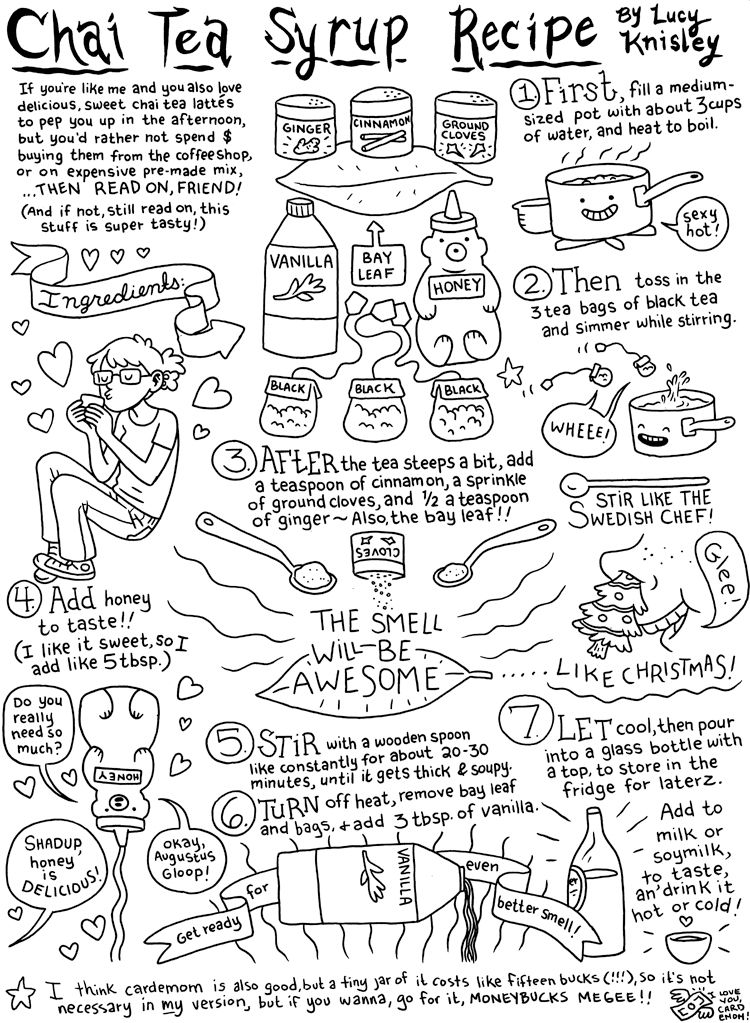 Chai Tea Syrup Recipe
By Lucy
Knisley
If you're like me and you also love
delicious, sweet chai tea lattés
to pep you up in the afternoon,
but you'd rather not spend $
buying them from the coffeeshop,
or on expensive pre-made mix,
...THEN READ ON, FRIEND!
(And if not, still read on, this
stuff is super tasty!)
Ingredients:
GINGER
CINNAMON
GROUND
CLOVES
VANILLA
BAY
LEAF
HONEY
BLACK
BLACK
BLACK
1. First, fill a medium-
sized pot with about 3 cups
of water, and heat to boil.
sexy
hot!
2. Then toss in the
3 tea bags of black tea
and simmer while stirring.
WHEEE!
STIR LIKE THE
SWEDISH CHEF!
3. AFTER the tea steeps a bit, add
a teaspoon of cinnamon, a sprinkle
of ground cloves, and 1/2 a teaspoon
of ginger~ Also, the bay leaf!!
CLOVES
THE SMELL
WILL BE
AWESOME
.....LIKE CHRISTMAS!
Glee!
4. Add honey
to taste!!
(I like it sweet, so I
add like 5 tbsp.)
Do you
really
need so
much?
HONEY
SHADUP,
honey
is
DELICIOUS!
okay,
Augustus
Gloop!
5. STIR with a wooden spoon
like constantly for about 20-30
minutes, until it gets thick & soupy.
6. TURN off heat, remove bay leaf
and bags, + add 3 tbsp. of vanilla.
VANILLA
Get ready
for
even
better smell!
7. LET cool, then pour
into a glass bottle with
a top, to store in the
fridge for laterz.
Add to
milk or
soymilk,
to taste,
an' drink it
hot or cold!
I think cardemom is also good, but a tiny jar of it costs like fifteen bucks (!!!), so it's not
necessary in my version, but if you wanna, go for it, MONEYBUCKS MEGEE!!
I LOVE
YOU,
CARD
EMOM!